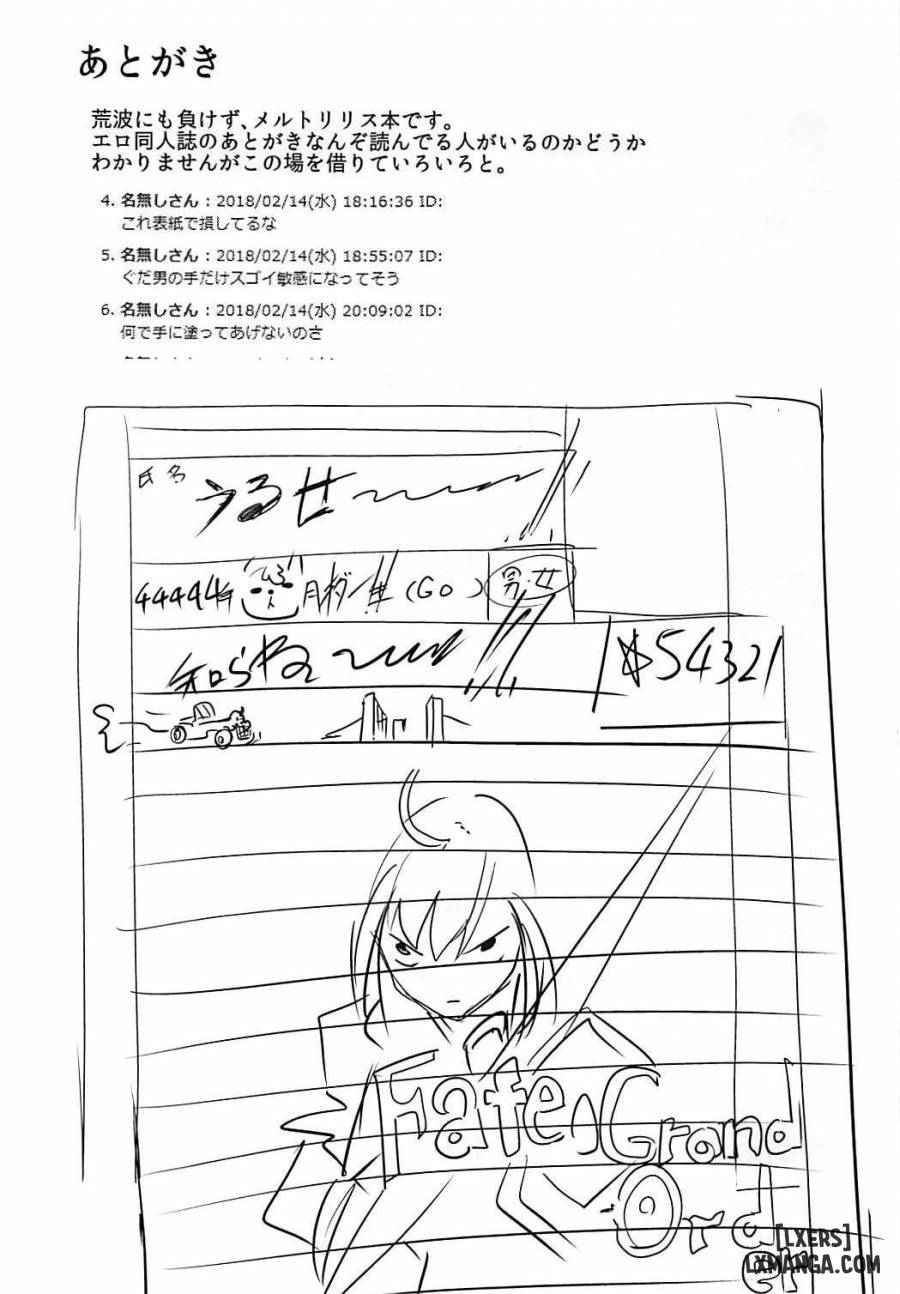 あとがき
荒波にも負けず、メルトリリス本です。
エロ同人誌のあとがきなんぞ読んでる人がいるのかどうか
わかりませんがこの場を借りていろいろと。
4. 名無しさん : 2018/02/14(水) 18:16:36 ID:
これ表紙で損してるな
5. 名無しさん : 2018/02/14(水) 18:55:07 ID:
ぐだ男の手だけスゴイ敏感になってそう
6. 名無しさん : 2018/02/14(水) 20:09:02 ID:
何で手に塗ってあげないのさ
氏名
うるせ〜
44444年
月
(GO)
男・女
知らね〜
54321
Fate
Grand
Order
[LXERS]
LXMANGA.COM